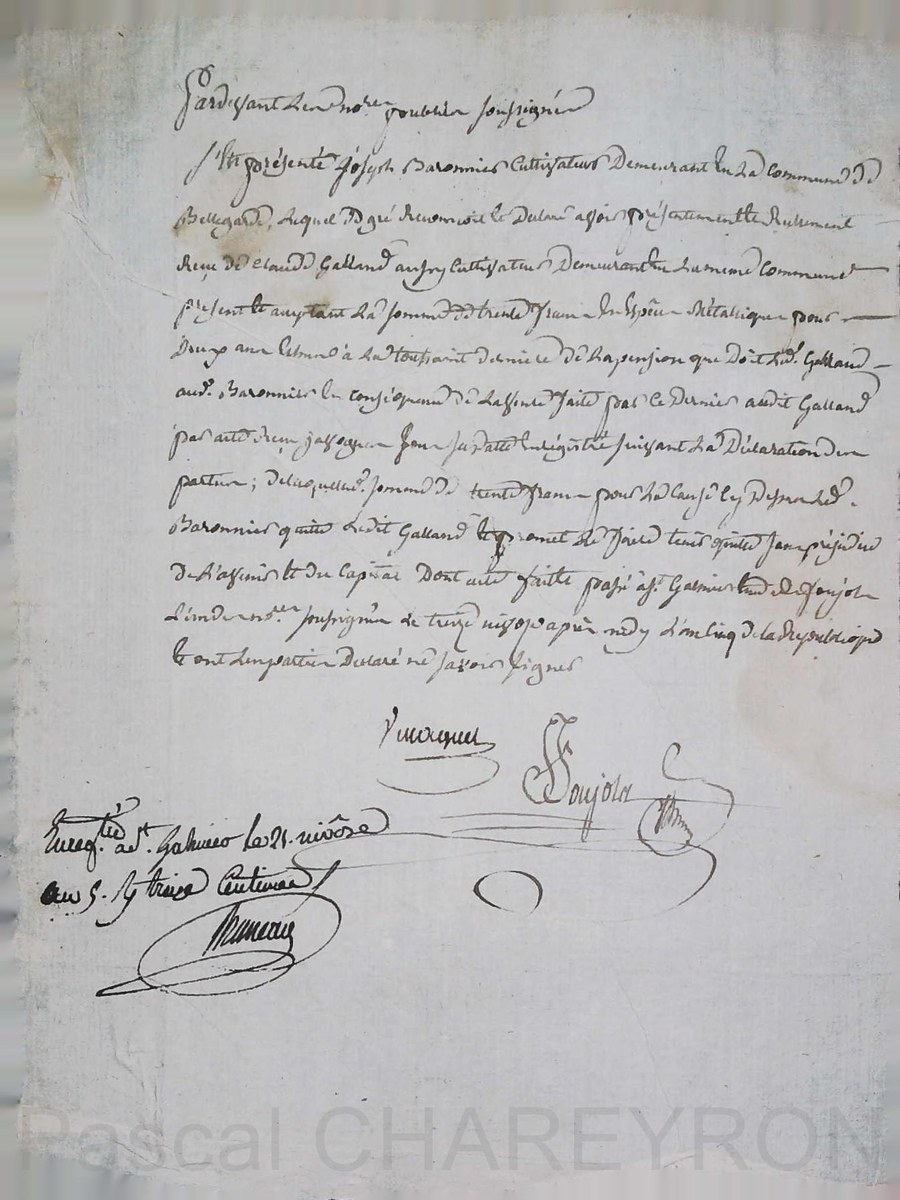 Pardevant Les no.res publics soussignés
S'est présenté Joseph Baronnier Cultivateur Demeurant En La Commune de
Bellegarde, Lequel De gré Reconnoit et Declare avoir présentement et Réellement
Reçu de Claude Galland aussy Cultivateur Demeurant En La meme Commune
présent et acceptant La somme de trente francs En Espèce Métalique pour
Deux ans Echus à La toussaint Derniere de La pension que Doit Led. Galland
aud. Baronnier En conséquence de La vente faite par ce Dernier audit Galland
par acte Reçu jour Enrégistré suivant La Déclaration des
parties; De laquelle somme de trente francs pour La Cause Cy Dessus Led.
Baronnier quitte Ledit Galland Et promet Le faire tenir quitte sans préjudice
De L'avenir Et du Capital Dont acte fait Et passé à St. Galmier Etude de Soujola
L'un des no.res soussignés Le treize nivose après midy L'an Cinq de la Republique
Et ont Les parties Declaré ne savoir signer
Soujola
Enreg.tré à St. Galmier le 21. nivôse
an 5. Centimes
Pascal CHAREYRON